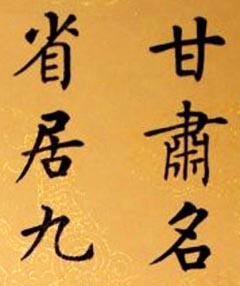 甘肅名
省居九